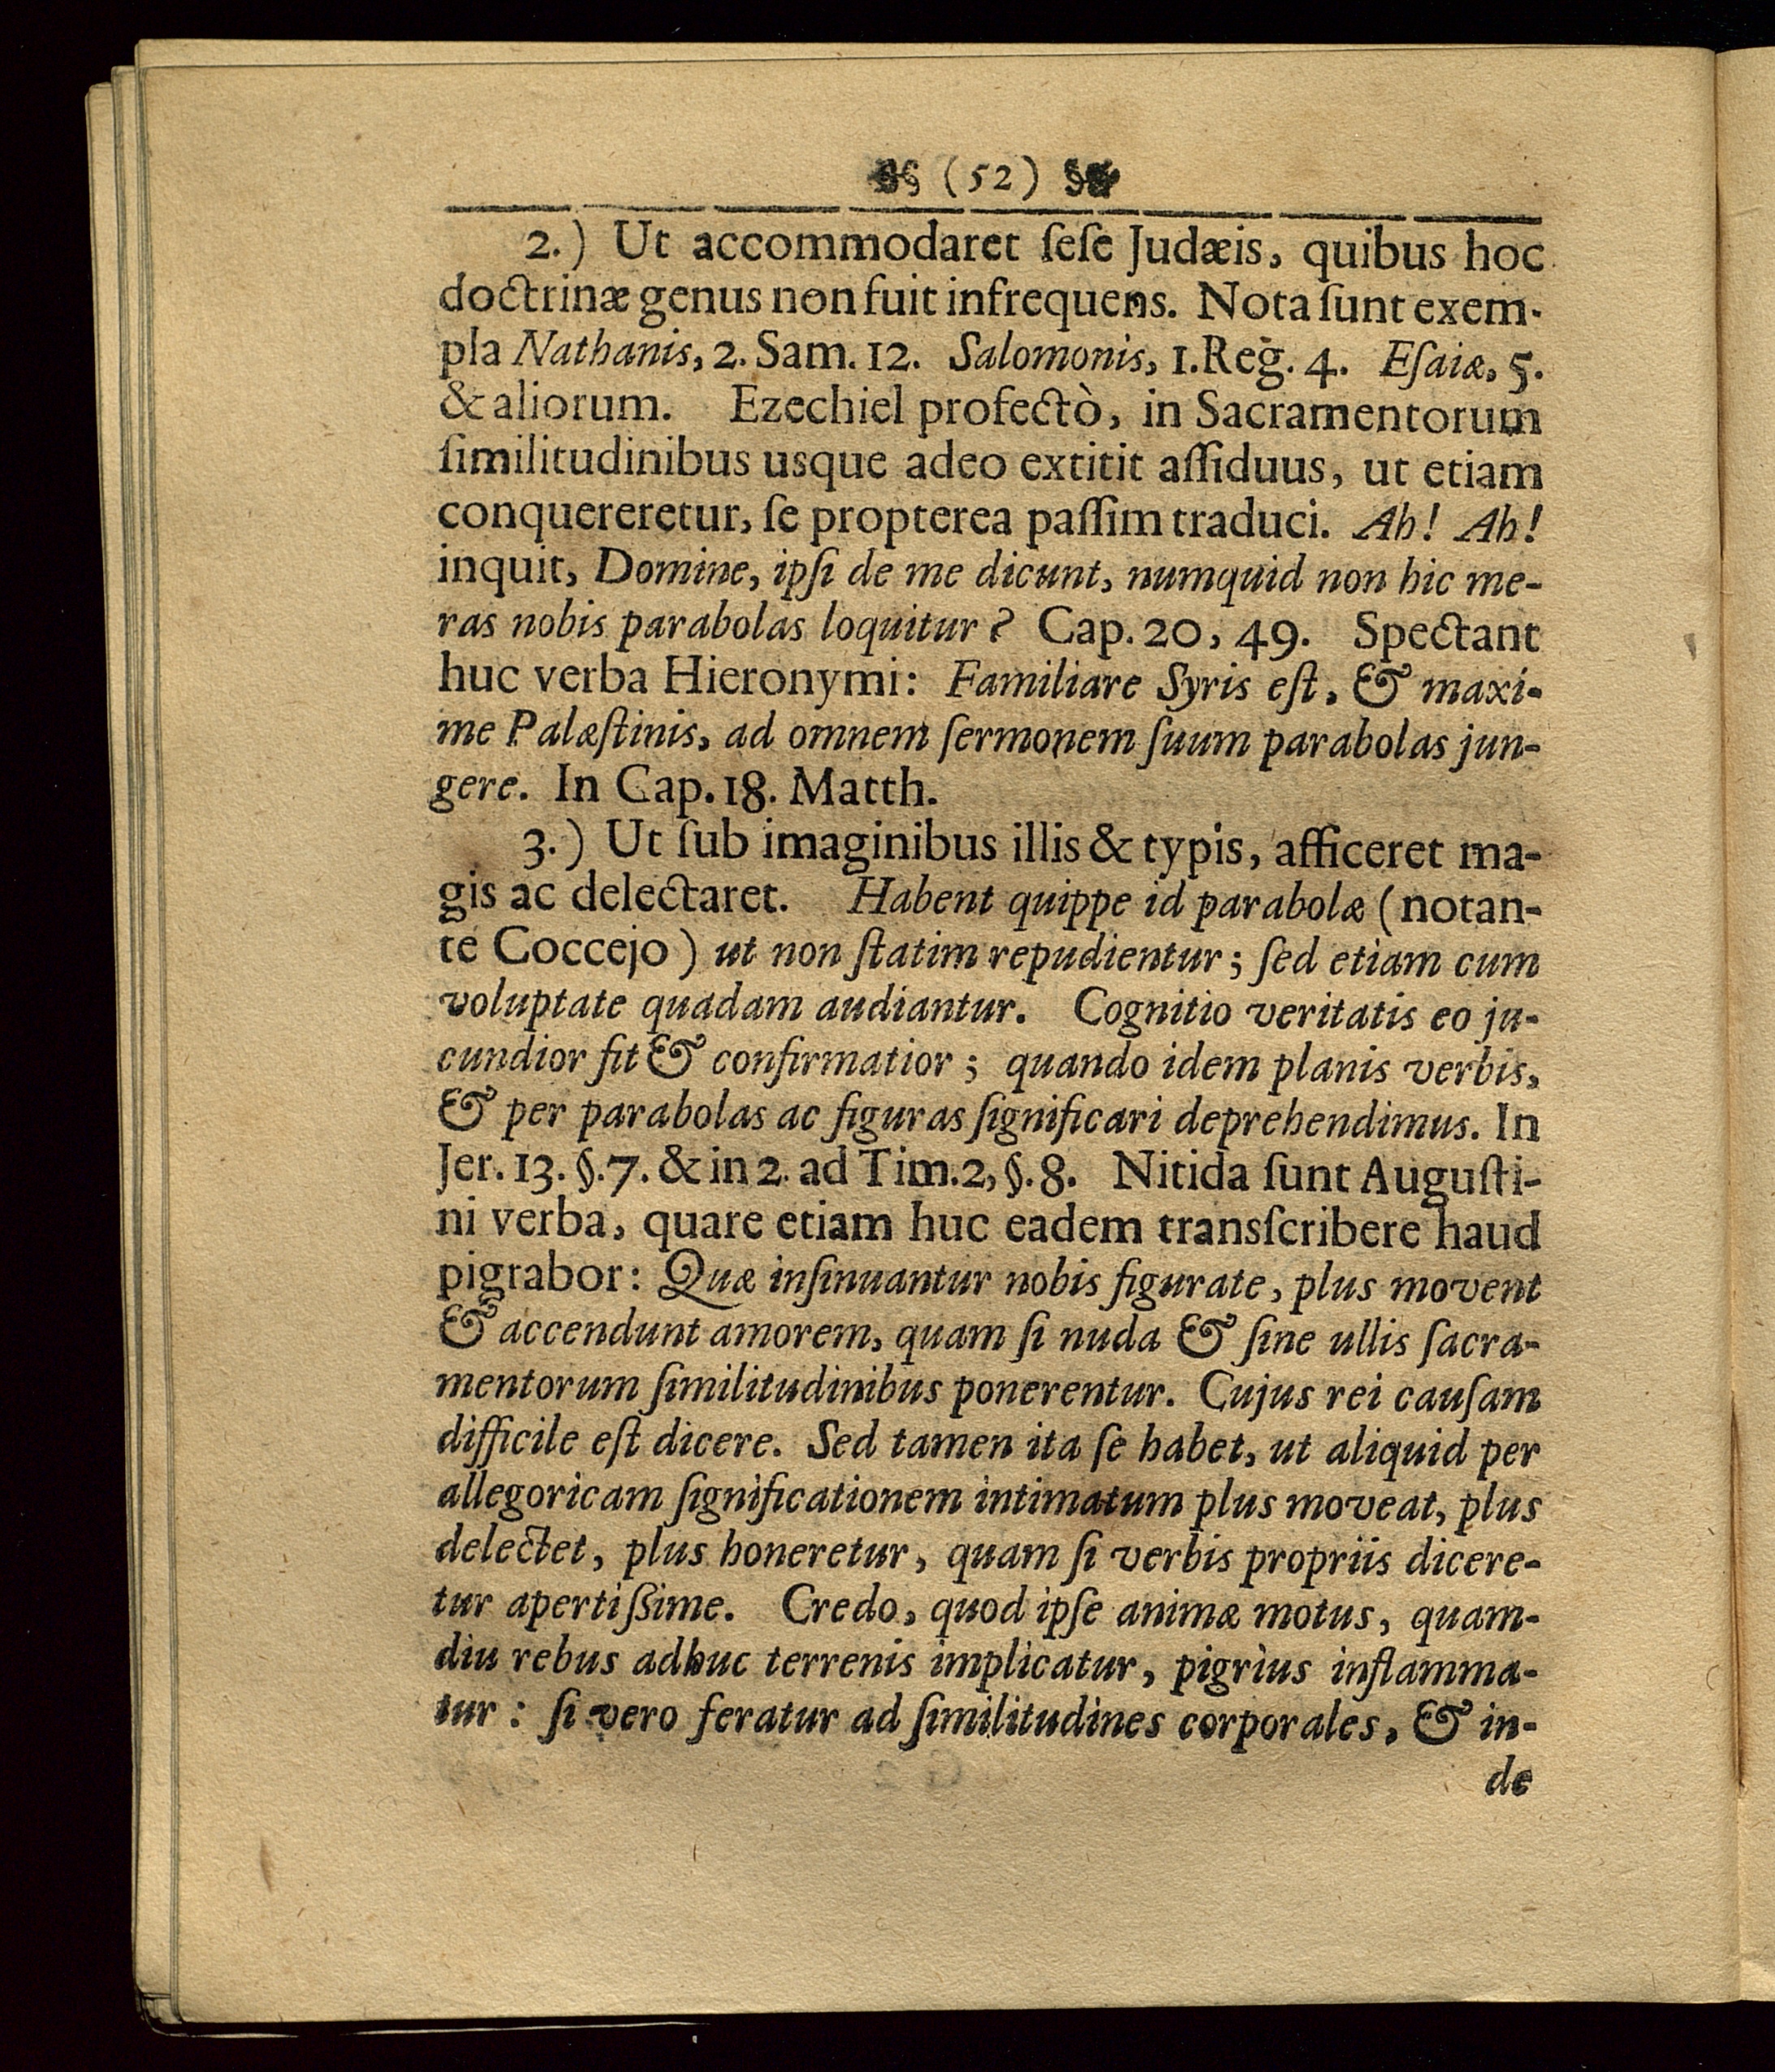 (52)
2.) Ut accommodaret ſeſe Judæis, quibus hoc
doctrinæ genus non fuit infrequens. Nota ſunt exem-
pla Nathanis, 2. Sam. 12. Salomonis, 1. Reg. 4. Eſaiæ, 5.
& aliorum. Ezechiel profectò, in Sacramentorum
ſimilitudinibus usque adeo extitit aſſiduus, ut etiam
conquereretur, ſe propterea paſſim traduci. Ah! Ah!
inquit, Domine, ipſi de me dicunt, numquid non hic me-
ras nobis parabolas loquitur? Cap. 20, 49. Spectant
huc verba Hieronymi: Familiare Syris eſt, & maxi-
me Palæſtinis, ad omnem ſermonem ſuum parabolas jun-
gere. In Cap. 18. Matth.
3.) Ut ſub imaginibus illis & typis, afficeret ma-
gis ac delectaret. Habent quippe id parabolæ (notan-
te Coccejo) ut non ſtatim repudientur; ſed etiam cum
voluptate quadam audiantur. Cognitio veritatis eo ju-
cundior fit & confirmatior; quando idem planis verbis,
& per parabolas ac figuras ſignificari deprehendimus. In
Jer. 13. §. 7. & in 2. ad Tim. 2, §. 8. Nitida ſunt Auguſti-
ni verba, quare etiam huc eadem transſcribere haud
pigrabor: Quæ inſinuantur nobis figurate, plus movent
& accendunt amorem, quam ſi nuda & ſine ullis ſacra-
mentorum ſimilitudinibus ponerentur. Cujus rei cauſam
difficile eſt dicere. Sed tamen ita ſe habet, ut aliquid per
allegoricam ſignificationem intimatum plus moveat, plus
delectet, plus honeretur, quam ſi verbis propriis dicere-
tur apertiſſime. Credo, quod ipſe animæ motus, quam-
diu rebus adhuc terrenis implicatur, pigrius inflamma-
tur: ſi vero feratur ad ſimilitudines corporales, & in-
de